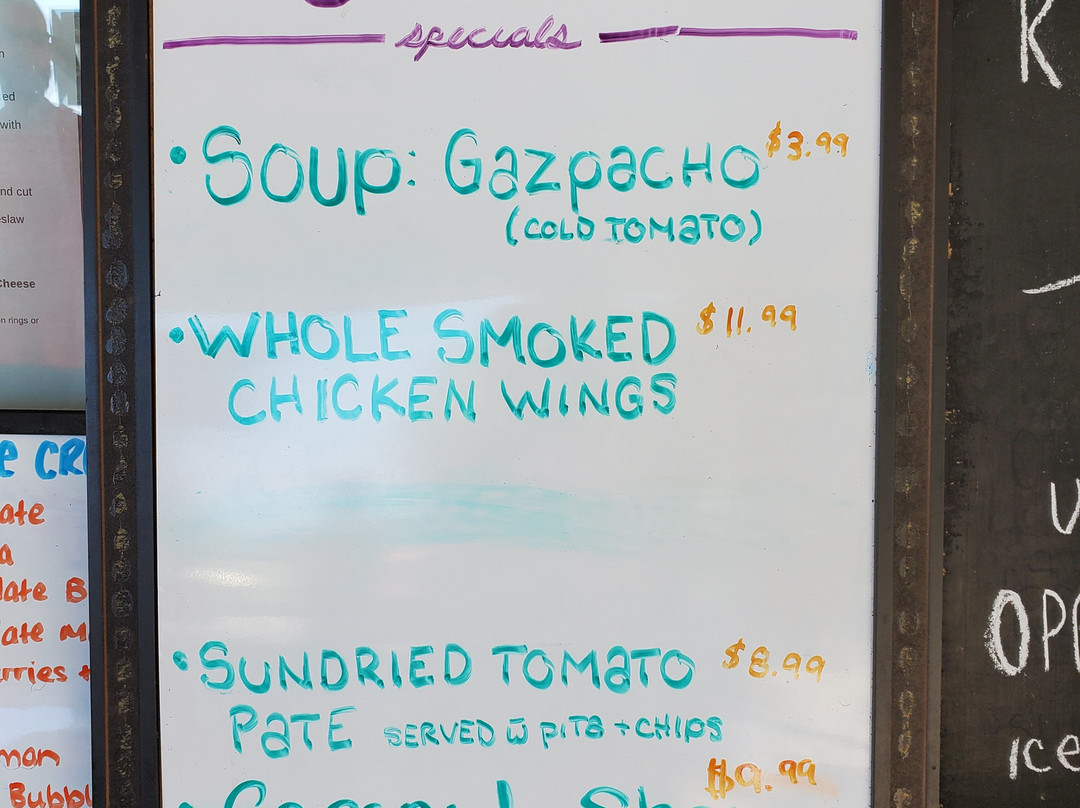 specials
• Soup: Gazpacho $3.99
(COLD TOMATO)
• WHOLE SMOKED $11.99
CHICKEN WINGS
• SUNDRIED TOMATO $8.99
PATE SERVED w̄ PITA + CHIPS
$9.99
ed
with
nd cut
slaw
Cheese
on rings or
ate
a
late B
ate M
rries +
mon
Bubbl
K
OPE
ice